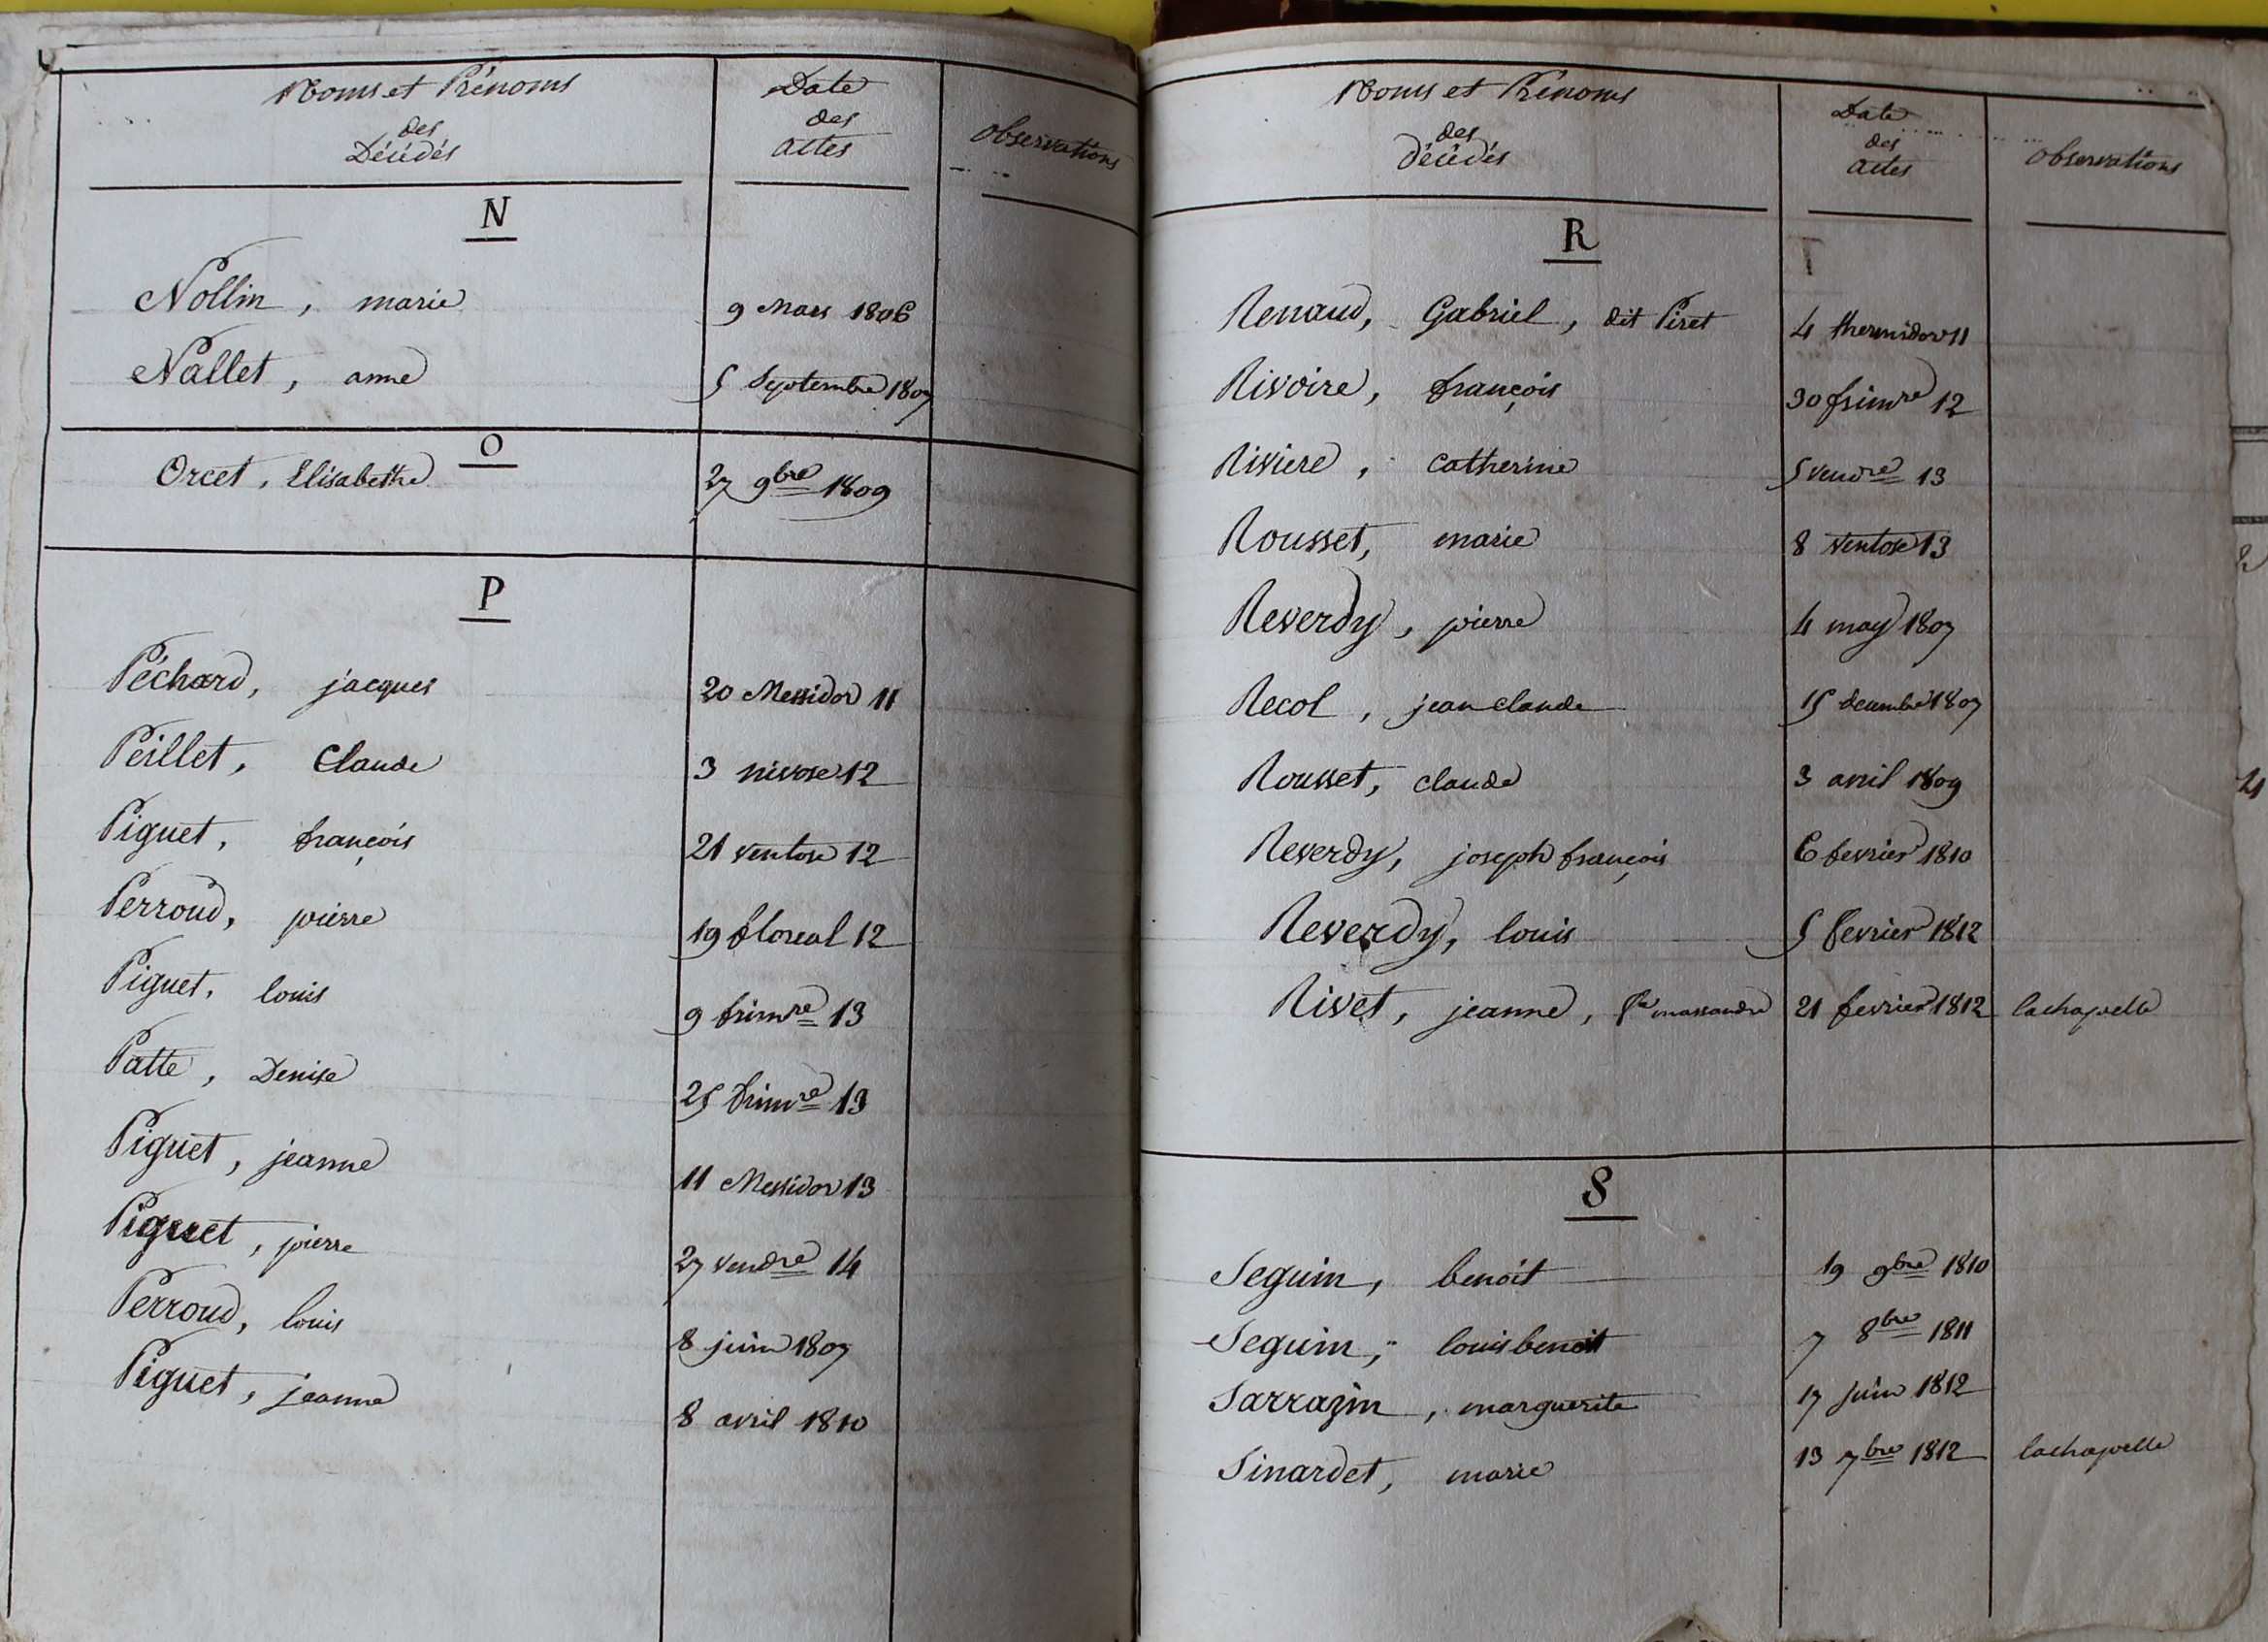 Noms et Prénoms
des
Décédés
Date
des
actes
observations
N
Nollin, marie 9 Mars 1806
Nallet, anne 5 Septembre 1807
O
Orcet, Elisabethe 27 9bre 1809
P
Péchard, jacques 20 Messidor 11
Peillet, Claude 3 nivose 12
Piguet, françois 21 ventose 12
Perroud, pierre 19 floreal 12
Piguet, louis 9 frimre 13
Patte, Denise 25 frimre 13
Piguet, jeanne 11 Messidor 13
Piguet, pierre 27 vendre 14
Perroud, louis 8 juin 1807
Piguet, jeanne 8 avril 1810
Noms et Prénoms
des
décédés
Date
des
actes
observations
R
Renaud, Gabriel, dit Piret 4 thermidor 11
Rivoire, françois 30 frimre 12
Riviere, catherine 5 vendre 13
Rousset, marie 8 ventose 13
Reverdy, pierre 4 may 1807
Recol, jean claude 15 decembre 1807
Rousset, claude 3 avril 1809
Reverdy, joseph françois 6 fevrier 1810
Reverdy, louis 5 fevrier 1812
Rivet, jeanne, fe massandre 21 fevrier 1812 lachapelle
S
Seguin, benoit 19 9bre 1810
Seguin, louis benoit 7 8bre 1811
Sarrazin, marguerite 17 juin 1812
Sinardet, marie 13 7bre 1812 lachapelle